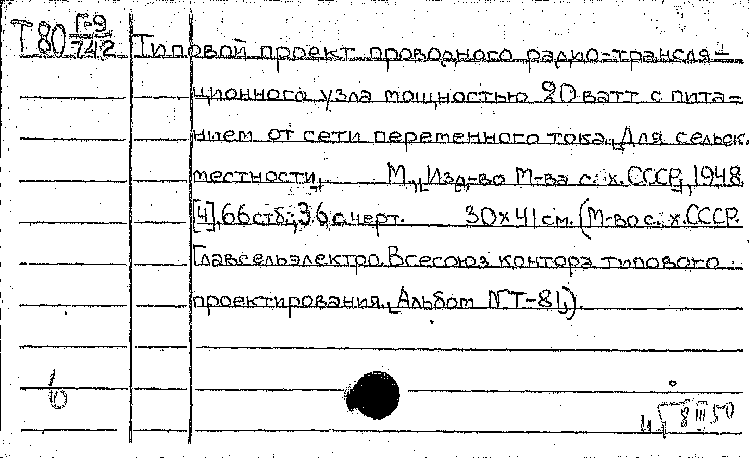 Т80 Г-9/742 Типовой проект проводного радио-трансля-
ционного узла мощностью 20 ватт с пита-
нием от сети переменного тока. Для сельск.
местности. М., Изд-во М-ва с. х. СССР, 1948
[4], 66 стб.; 36 л. черт. 30х41 см. (М-во с. х. СССР.
Главсельэлектро. Всесоюз контора типового
проектирования. Альбом № Т-81).
6
8 III 50